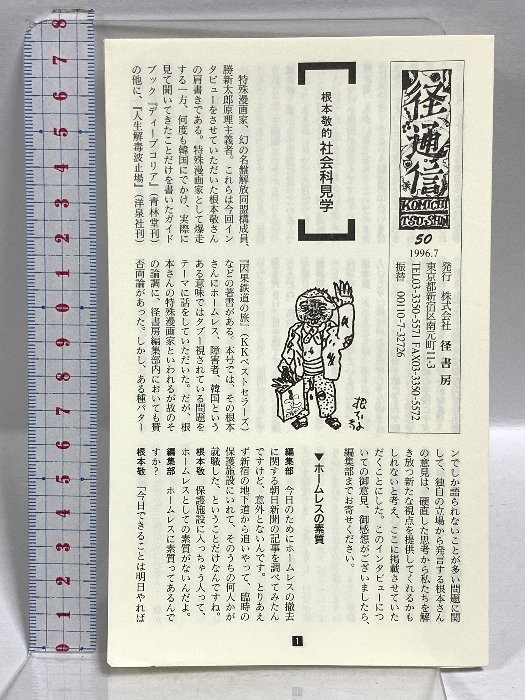 径通信
KOMICHI
TSUSHIN
50
1996.7
発行 株式会社 径書房
東京都新宿区南元町11-3
TEL03-3350-5571 FAX03-3350-5572
振替 00010-7-32726
根本敬的 社会科見学
特殊漫画家、幻の名盤解放同盟構成員、
勝新太郎原理主義者。これらは今回イン
タビューをさせていただいた根本敬さん
の肩書きである。特殊漫画家として爆走
する一方、何度も韓国にでかけ、実際に
見て聞いてきたことだけを書いたガイド
ブック『ディープコリア』（青林堂刊）
の他に、『人生解毒波止場』（洋泉社刊）
『因果鉄道の旅』（KKベストセラーズ）
などの著書がある。本号では、その根本
さんにホームレス、障害者、韓国という
ある意味ではタブー視されている問題を
テーマに話をしていただいた。だが、根
本さんの特殊漫画家といわれるが故のそ
の論調に、径書房編集部内においても賛
否両論があった。しかし、ある種パター
ンでしか語られないことが多い問題に関
して、独自の立場から発言する根本さん
の意見は、硬直した思考から私たちを解
き放つ新たな視点を提供してくれるかも
しれないと考え、ここに掲載させていた
だくことにした。このインタビューにつ
いての御意見、御感想がございましたら、
編集部までお寄せください。
▼ホームレスの素質
編集部 今日のためにホームレスの撤去
に関する朝日新聞の記事を調べてみたん
ですけど、意外とないんです。とりあえ
ず新宿の地下道から追いやって、臨時の
保護施設にいれて、そのうちの何人かが
就職した、ということだけなんですね。
根本敬 保護施設に入っちゃう人って、
ホームレスとしての素質がないんだよ。
編集部 ホームレスに素質ってあるんで
すか？
根本敬 「今日できることは明日やれば
1
8
7
6
5
4
3
2
1
0
9
8
7
6
5
4
3
2
1
0